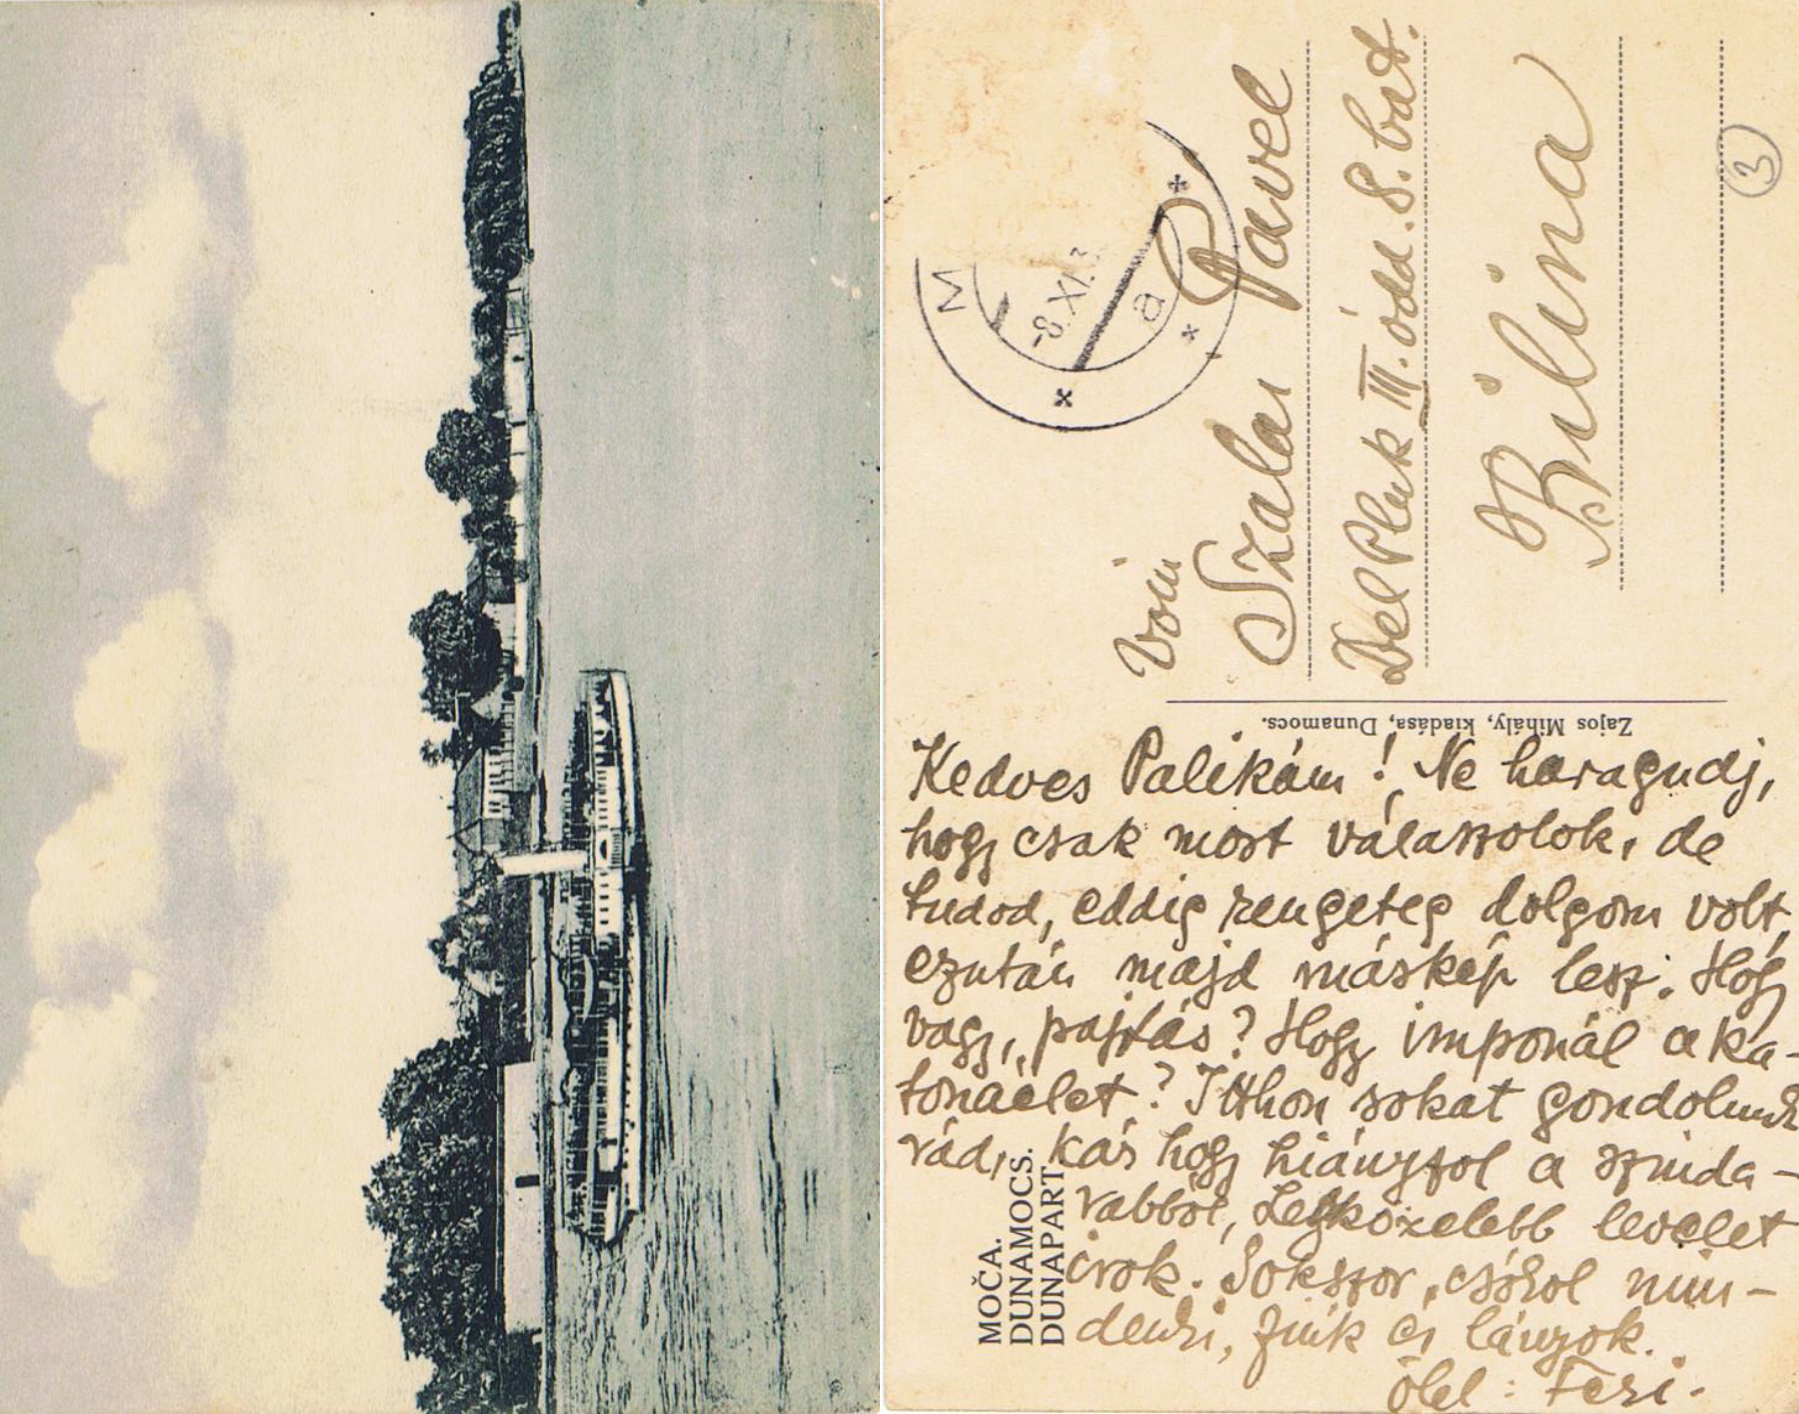 Kedves Palikám! Ne haragudj,
hogy csak most válaszolok, de
tudod, eddig rengeteg dolgom volt,
ezután majd máskép lesz. Hogy
vagy, „pajtás? Hogy imponál a ka-
tonaélet? Itthon sokat gondolunk
rád, kár hogy hiányzol a szinda-
rabból, Legközelebb levelet
irok. Sokszor csókol min-
denki, fiúk és lányok.
ölel: Feri.
MOČA.
DUNAMOCS.
DUNAPART
Zajos Mihály, kiadása, Dunamocs.
M
-8.XI.3
a
Voin
Szalai Pavel
Del Pluk III. odd. 8. bat.
Bilina
3